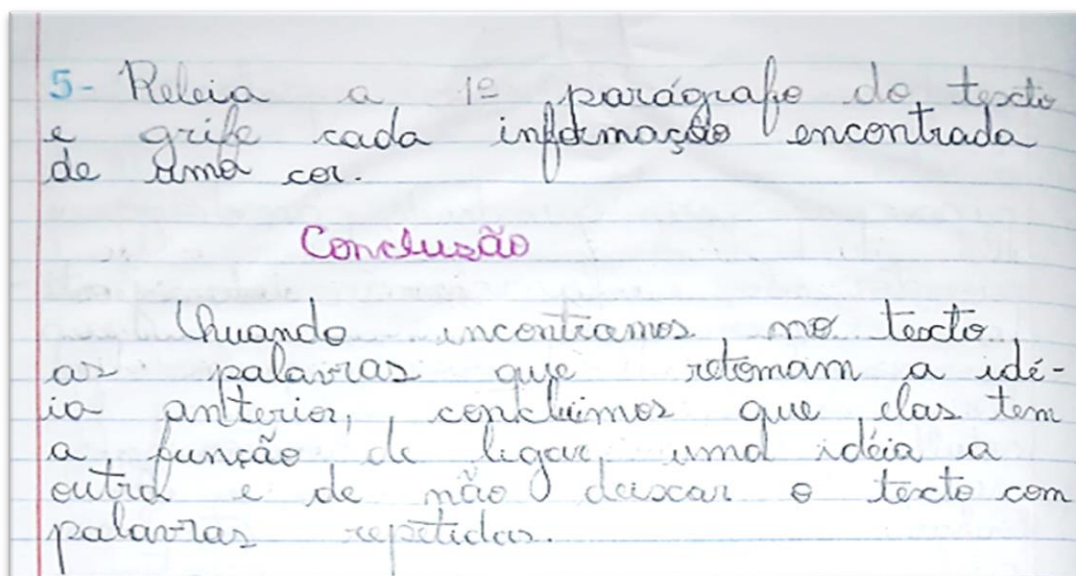 5- Releia a 1º parágrafo do texto
e grife cada informação encontrada
de uma cor.
Conclusão
Quando encontramos no texto,
as palavras que retomam a idé-
ia anterior, concluímos que elas tem
a função de ligar uma idéia a
outra e de não deixar o texto com
palavras repetidas.